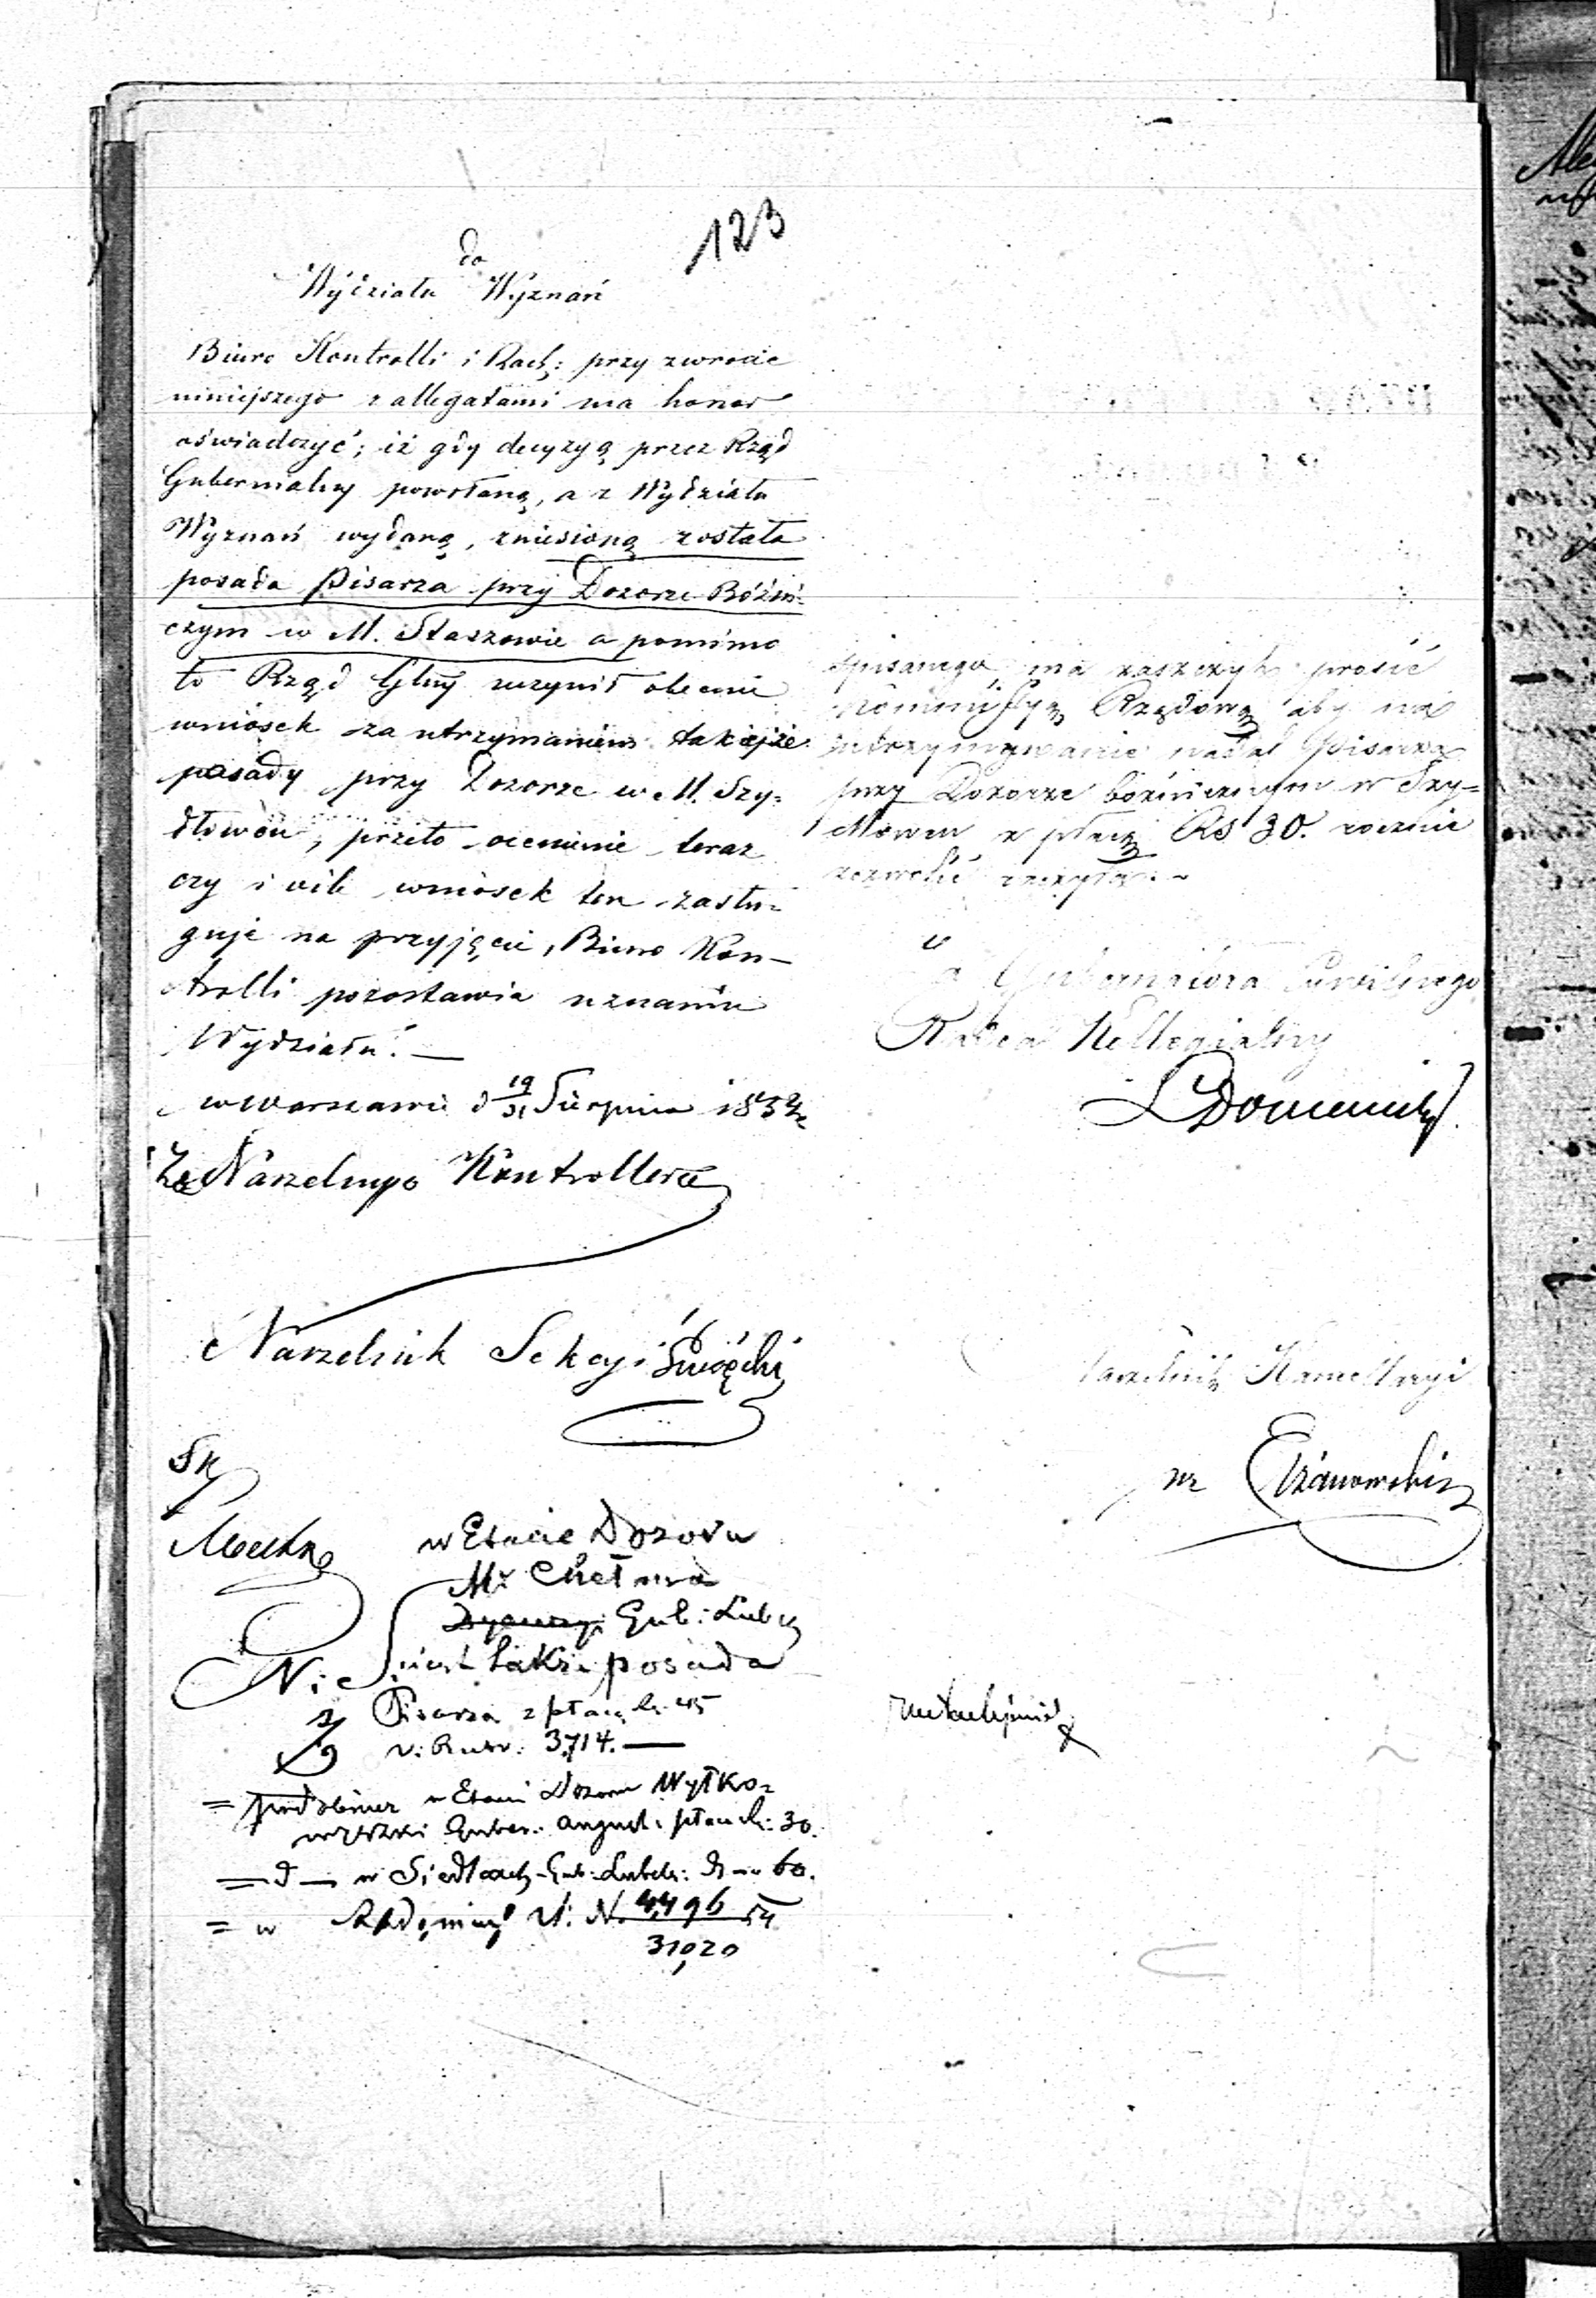 123
do
Wydziału Wyznań
Biuro Kontrolli i Rach: przy zwrocie
niniejszego z allegatami ma honor
oświadczyć; iż gdy decyzyą przez Rząd
Gubernialny powołaną, a z Wydziału
Wyznań wydaną, zniesioną została
posada Pisarza przy Dozorze Bóżni-
czym w M. Staszowie a pomimo
to Rząd Glny uczynił obecnie
wniosek za utrzymaniem takiejże
posady przy Dozorze w M. Szy=
dłowcu, przeto ocenienie teraz
czy i o ile wniosek ten zasłu=
guje na przyjęcie, Biuro Kon-
trolli pozostawia uznaniu
Wydziału. —
w Warszawie d 19/31 Sierpnia 1852
Za Naczelnego Kontrollera
Naczelnik Sekcyi Święcki
w Etacie Dozoru
M. Chełma
Gub: Lubel
Nie jest także posada
Pisarza z płacą 45
3,714. —
= podobnież w Etacie Dozoru Wyłko=
wyszki Guber: August: płaca 30.
= d — w Siedlcach Gub: Lubels: 60.
= w N. 4,496
31,020
spisanego, ma zaszczyt prosić
Kommissyę Rządową aby na
utrzymywanie nadal Pisarza
przy Dozorze bóżniczym w Szy=
dłowcu z płacą Rs 30. rocznie
zezwolić raczyła. ~
Gubernatora Cywilnego
Radca Kollegialny
Naczelnik Kancellaryi